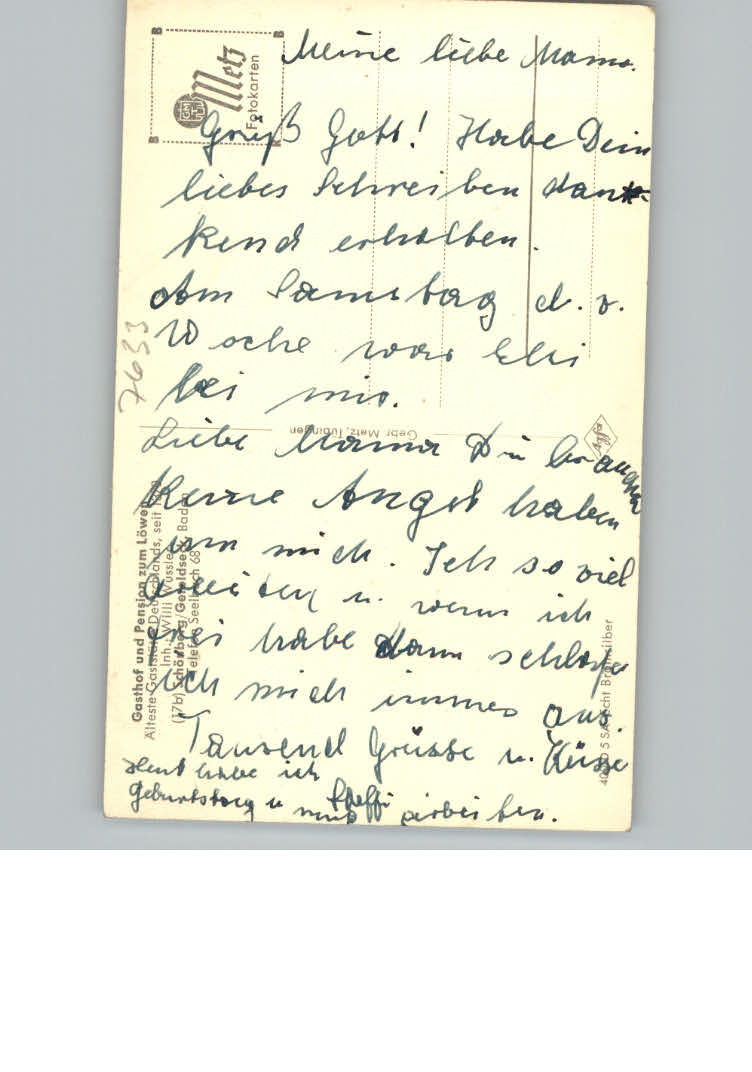 Meine liebe Mama.
Grüß Gott! Habe Dein
liebes Schreiben dan-
kend erhalten.
Am Samstag d. v.
Woche war Elsi
bei mir.
Liebe Mama Du brauchen
keine Angst haben
um mich. Ich so viel
u. wenn ich
frei habe dann schlafe
ich mich immer aus.
Tausend Grüsse u. Küsse
Steffi
Heut habe ich
Geburtstag u muß arbeiten.
7633
Metz
Fotokarten
Gebr. Metz, Tübingen
Agfa
Gasthof und Pension zum Löwen
Älteste Gaststätte Deutschlands, seit
Inh.: Willi Wussler
(17b) Schönberg/Geroldseck Baden
Telefon Seelbach 68
Echt Bromsilber